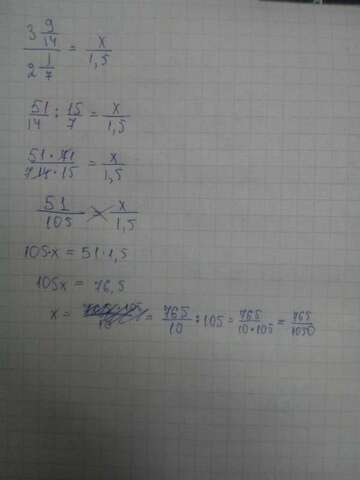 3 9/14 / 2 1/7 = x/1,5
51/14 : 15/7 = x/1,5
51·7 1/7 14·15 = x/1,5
51/105 = x/1,5
105·x = 51·1,5
105x = 76,5
x = = 765/10 : 105 = 765/10·105 = 765/1050